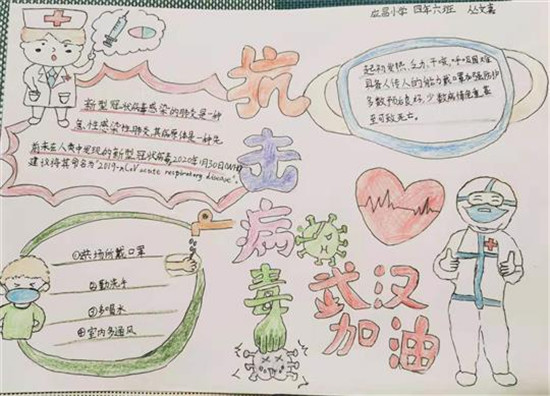 应昌小学 四年六班 丛文嘉
抗击病毒
新型冠状病毒感染的肺炎是一种
急性感染性肺炎,其病原体是一种先
前未在人类中发现的新型冠状病毒,2020年1月30日(WHO)
建议将其命名为"2019-nCoV acute respiratory disease"。
起初发热、乏力、干咳、呼吸困难
具备人传人的能力戴口罩加强防护
多数预后良好,少数病情危重甚
至可致死亡。
①公共场所戴口罩
②勤洗手
③多喝水
④室内多通风
武汉
加油